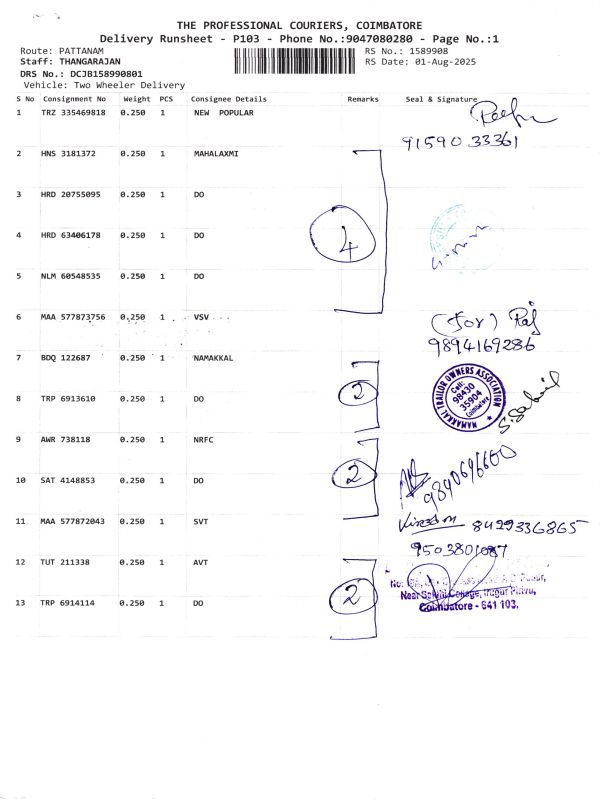 THE PROFESSIONAL COURIERS, COIMBATORE
Delivery Runsheet - P103 - Phone No.:9047080280 - Page No.:1
Route: PATTANAM RS No.: 1589908
Staff: THANGARAJAN RS Date: 01-Aug-2025
DRS No.: DCJB158990801
Vehicle: Two Wheeler Delivery
S No Consignment No Weight PCS Consignee Details Remarks Seal & Signature
1 TRZ 335469818 0.250 1 NEW POPULAR
91590 33361
2 HNS 3181372 0.250 1 MAHALAXMI
3 HRD 20755095 0.250 1 DO
4 HRD 63406178 0.250 1 DO 4
5 NLM 60548535 0.250 1 DO
6 MAA 577873756 0.250 1 VSV (For) Raj
9894169286
7 BDQ 122687 0.250 1 NAMAKKAL
NAMAKKAL TRAILOR OWNERS ASSOCIATION
Cell:
98430
35904
Coimbatore
8 TRP 6913610 0.250 1 DO 2
9 AWR 738118 0.250 1 NRFC
10 SAT 4148853 0.250 1 DO 2 9840696660
11 MAA 577872043 0.250 1 SVT 8429336865
9503801087
12 TUT 211338 0.250 1 AVT
No:
13 TRP 6914114 0.250 1 DO 2 Near College, Irugur Pirivu,
Coimbatore - 641 103.